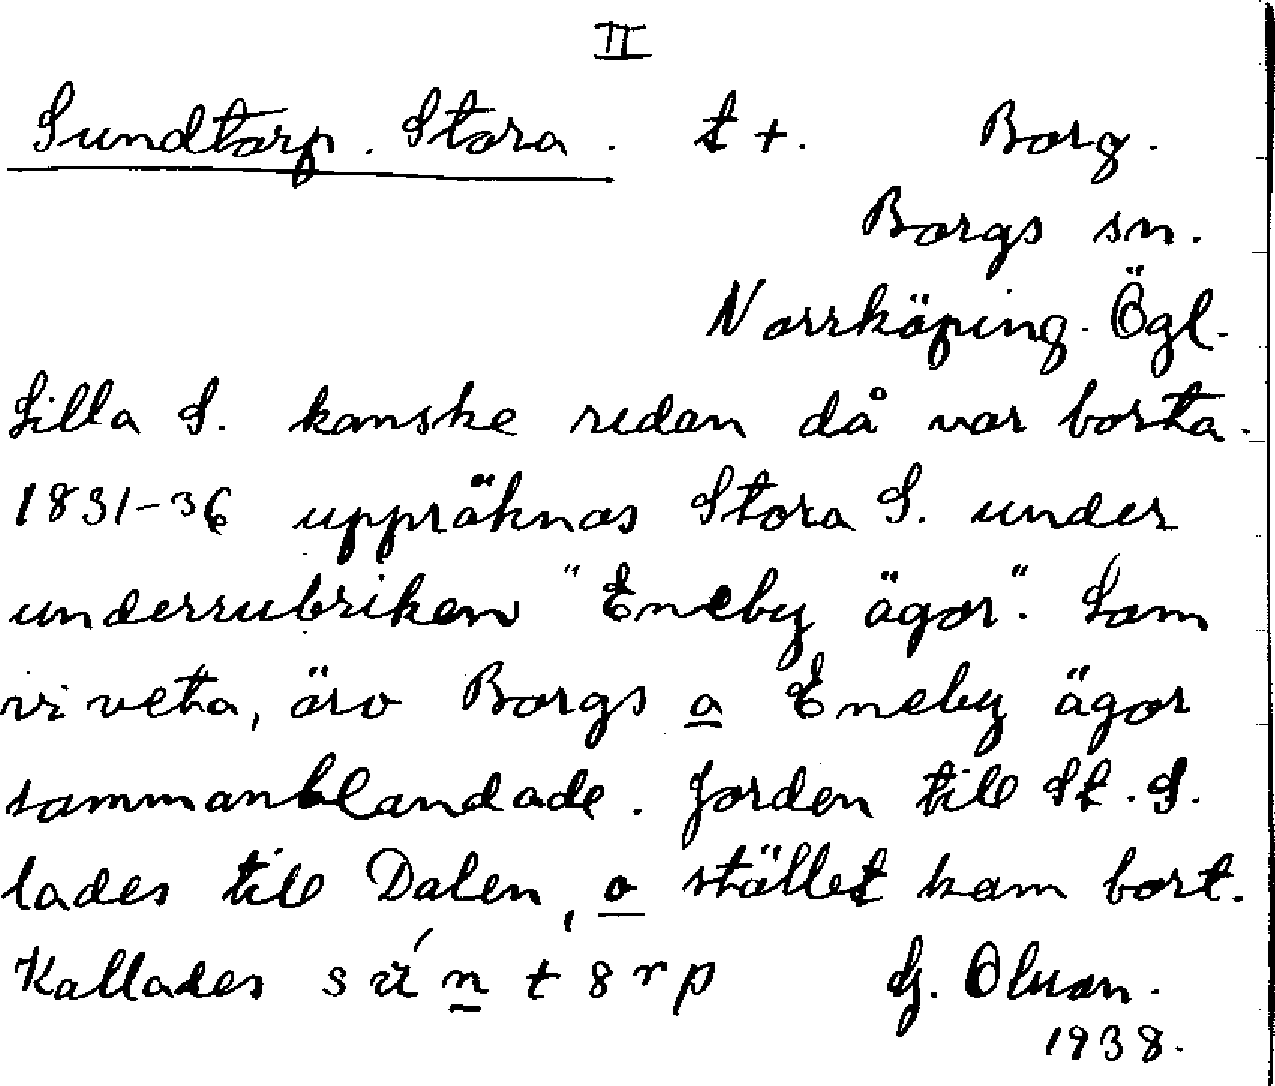 II
Sundtorp. Stora. t +. Borg.
Borgs sn.
Norrköping. Ögl.
Lilla S. kanske redan då var borta.
1831-36 uppräknas Stora S. under
underrubriken "Eneby ägor". Som
vi veta, äro Borgs o Eneby ägor
sammanblandade. Jorden till St. S.
lades till Dalen, o stället kom bort.
Kallades
1938.